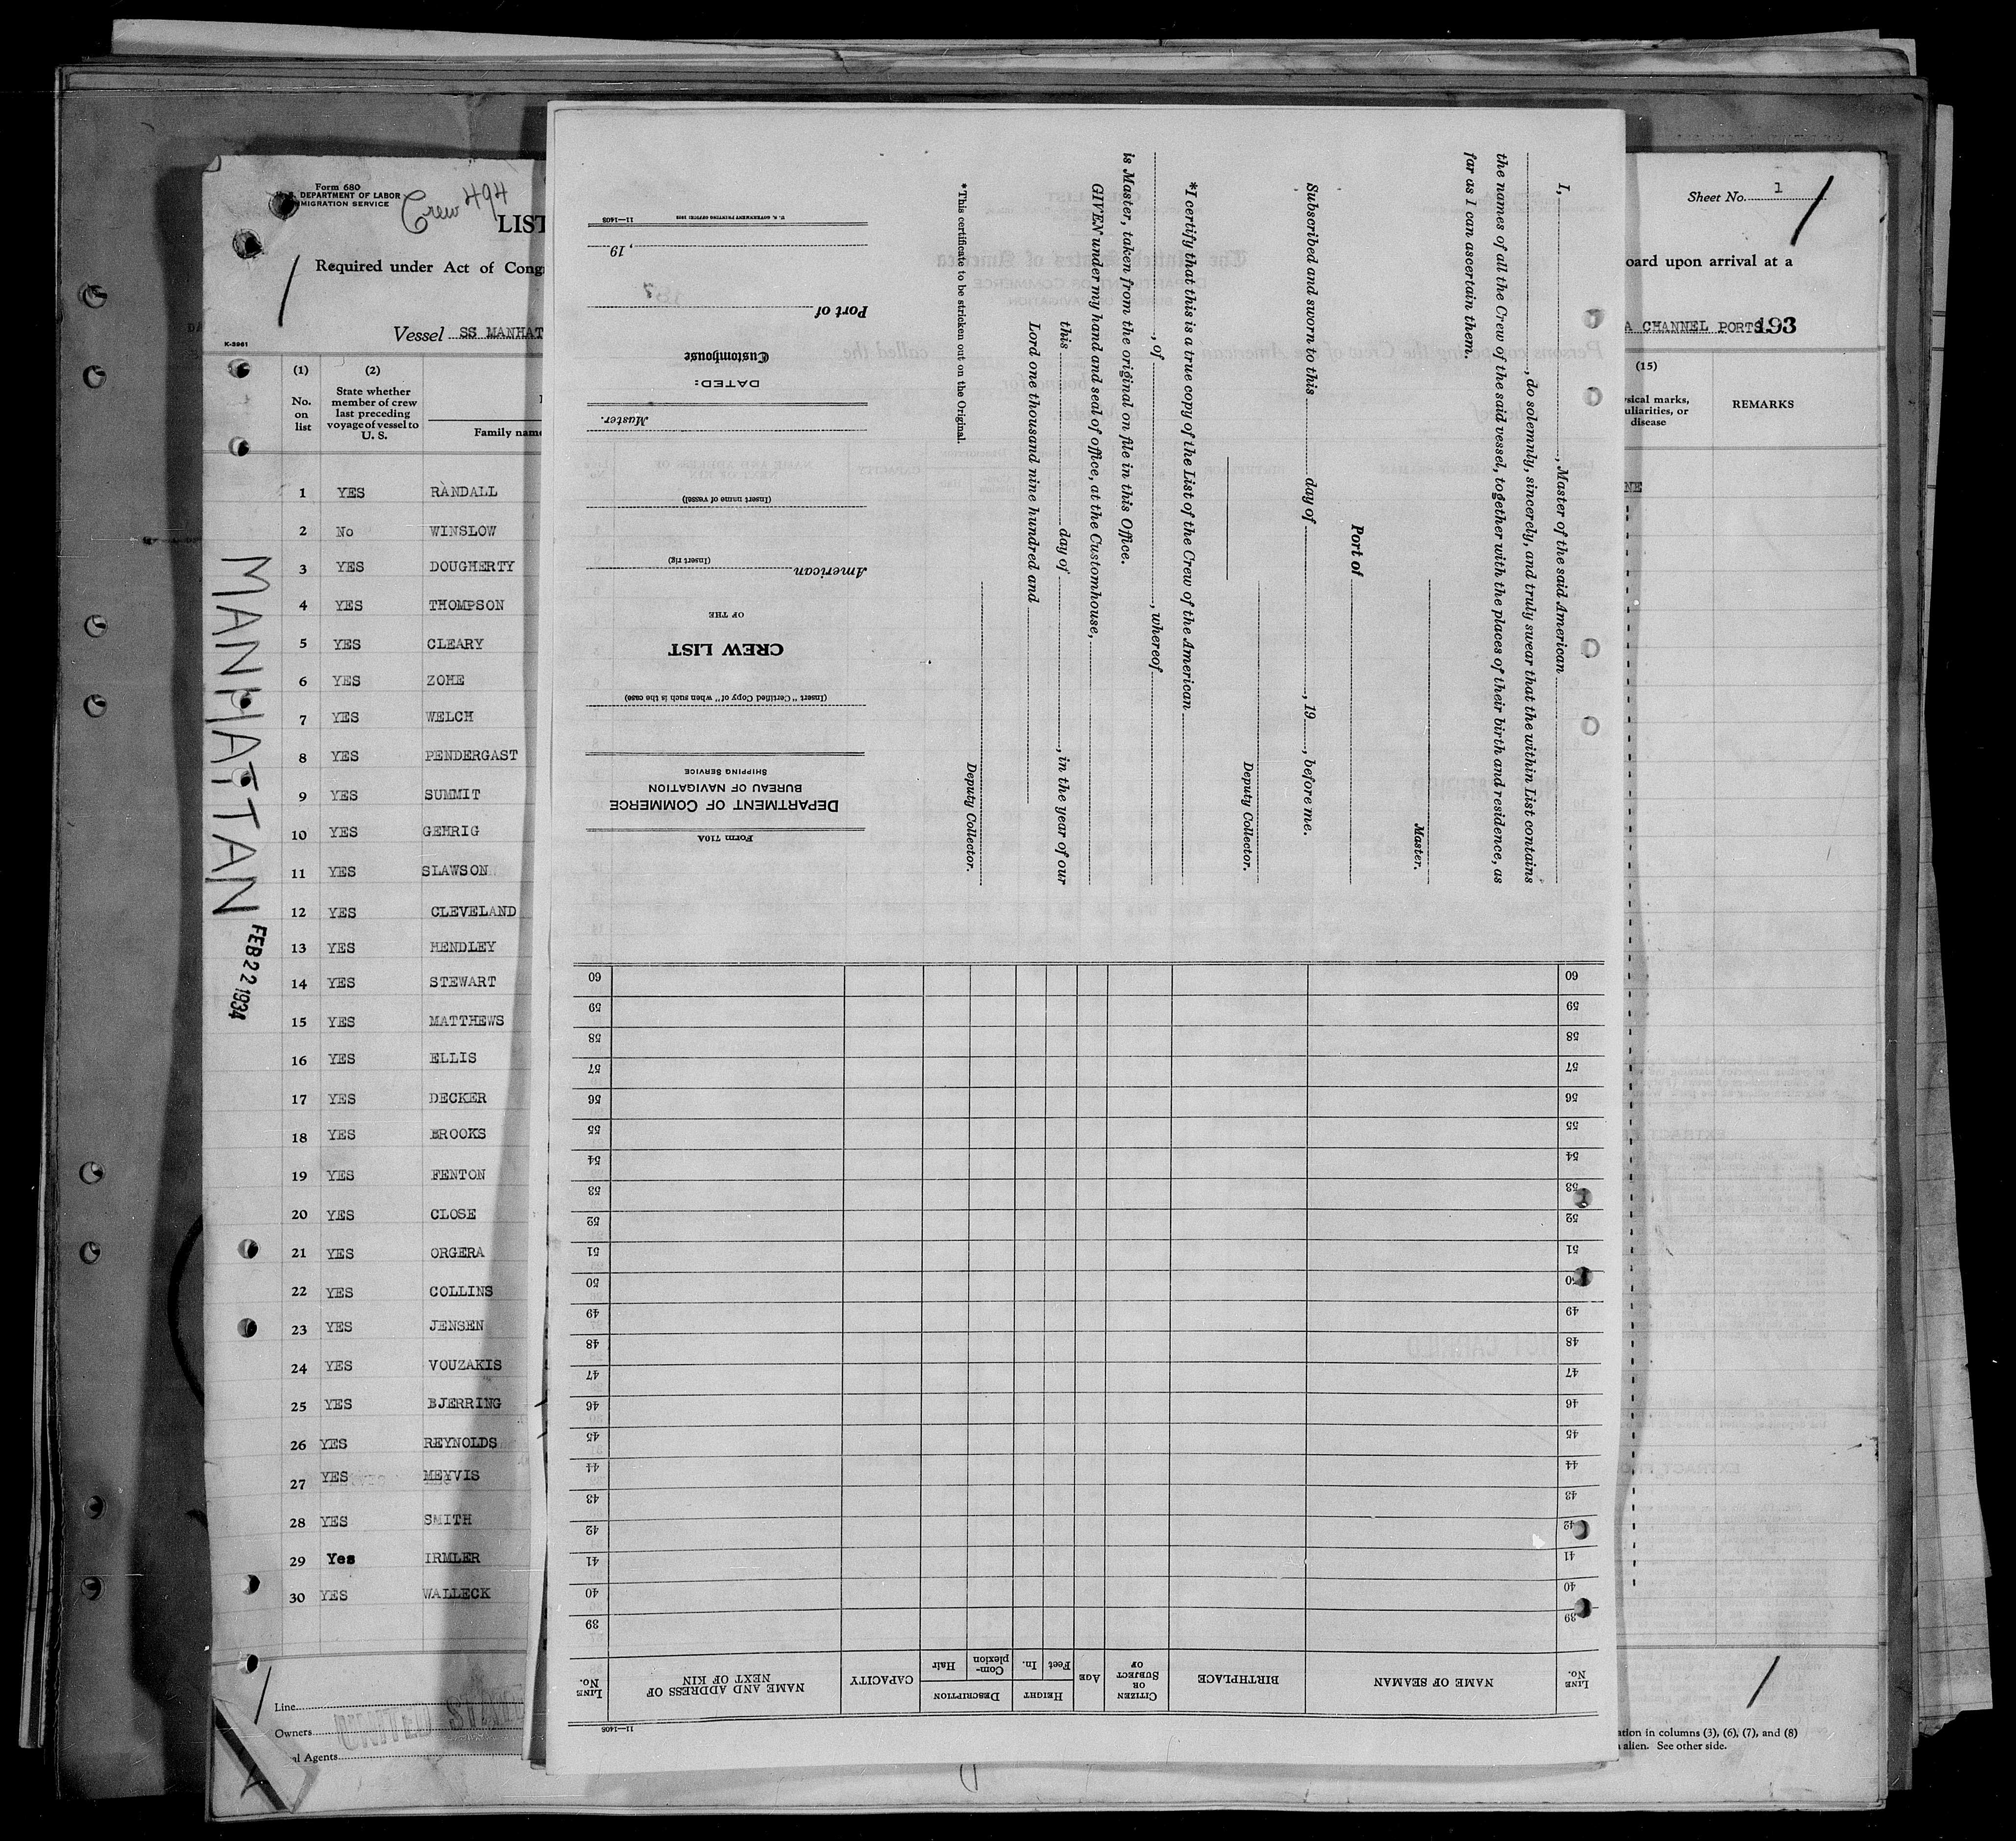 Form 680
DEPARTMENT OF LABOR
MIGRATION SERVICE
Crew 494
LIST
Required under Act of Cong
Vessel SS MANHAT
K-2961
(1)
No.
on
list
(2)
State whether
member of crew
last preceding
voyage of vessel to
U. S.
Family name
1 YES RANDALL
2 No WINSLOW
3 YES DOUGHERTY
4 YES THOMPSON
5 YES CLEARY
6 YES ZOHE
7 YES WELCH
8 YES PENDERGAST
9 YES SUMMIT
10 YES GEHRIG
11 YES SLAWSON
12 YES CLEVELAND
13 YES HENDLEY
14 YES STEWART
15 YES MATTHEWS
16 YES ELLIS
17 YES DECKER
18 YES BROOKS
19 YES FENTON
20 YES CLOSE
21 YES ORGERA
22 YES COLLINS
23 YES JENSEN
24 YES VOUZAKIS
25 YES BJERRING
26 YES REYNOLDS
27 YES MEYVIS
28 YES SMITH
29 Yes IRMLER
30 YES WALLECK
MANHATTAN
FEB 22 1934
Line
Owners
al Agents
UNITED STATES
I, , Master of the said American
, do solemnly, sincerely, and truly swear that the within List contains
the names of all the Crew of the said vessel, together with the places of their birth and residence, as
far as I can ascertain them.
Master.
Port of
Subscribed and sworn to this day of , 19 , before me.
Deputy Collector.
*I certify that this is a true copy of the List of the Crew of the American
, of , whereof
is Master, taken from the original on file in this Office.
GIVEN under my hand and seal of office, at the Customhouse,
this day of , in the year of our
Lord one thousand nine hundred and
Deputy Collector.
*This certificate to be stricken out on the Original.
Form 710A
DEPARTMENT OF COMMERCE
BUREAU OF NAVIGATION
SHIPPING SERVICE
(Insert "Certified Copy of" when such is the case)
CREW LIST
OF THE
American
(Insert rig)
(Insert name of vessel)
Master.
DATED:
Customhouse
Port of
, 19
U. S. GOVERNMENT PRINTING OFFICE:
11—1408
11—1408
LINE
No.
NAME OF SEAMAN
BIRTHPLACE
CITIZEN
OR
SUBJECT
OF
AGE
HEIGHT
Feet
In.
DESCRIPTION
Com-
plexion
Hair
CAPACITY
NAME AND ADDRESS OF
NEXT OF KIN
LINE
No.
39 39
40 40
41 41
42 42
43 43
44 44
45 45
46 46
47 47
48 48
49 49
50 50
51 51
52 52
53 53
54 54
55 55
56 56
57 57
58 58
59 59
60 60
Sheet No. 1
oard upon arrival at a
A CHANNEL PORTS 193
(15)
sical marks,
uliarities, or
disease
REMARKS
NE
ation in columns (3), (6), (7), and (8)
alien. See other side.